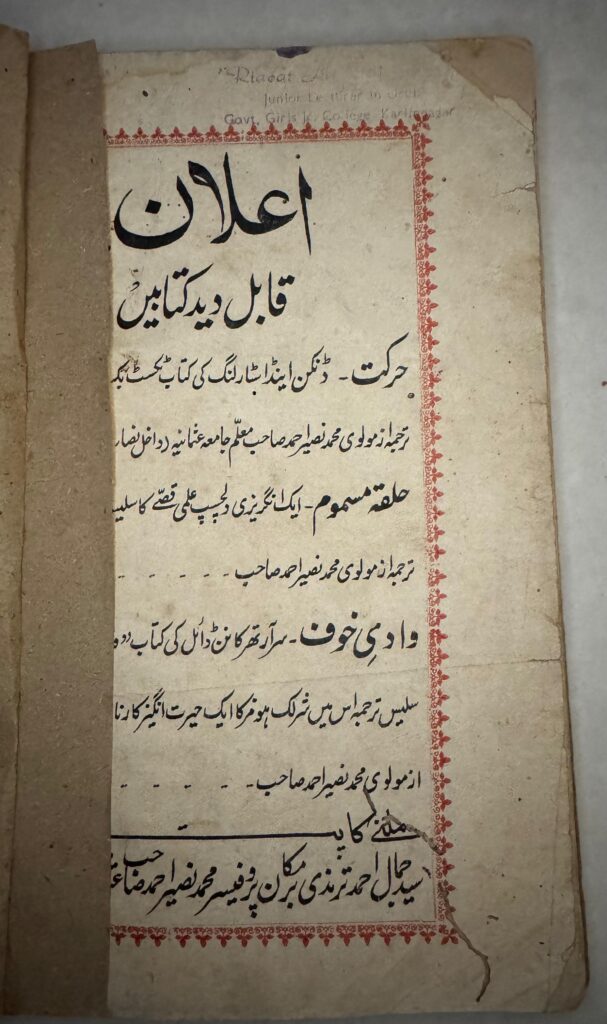 Riabat
Junior Lecturer in Urdu
Govt. Girls Jr. College Karimnagar
اعلان
قابل دید کتابیں
حرکت - ڈنکن اینڈ اسٹارلنگ کی کتاب ٹکسٹ بک
ترجمہ از مولوی محمد نصیر احمد صاحب معلّم جامعہ عثمانیہ (داخل نصاب
حلقہ مسموم - ایک انگریزی دلچسپ علمی قصّے کا سلیس
ترجمہ از مولوی محمد نصیر احمد صاحب - - - - -
وادیِ خوف - سر آرتھر کانن ڈائل کی کتاب دو
سلیس ترجمہ اس میں شرلک ہومز کا ایک حیرت انگیز کارنا
از مولوی محمد نصیر احمد صاحب - - - - -
ملنے کا پتہ
سید جمال احمد ترمذی بر مکان پروفیسر محمد نصیر احمد صاحب